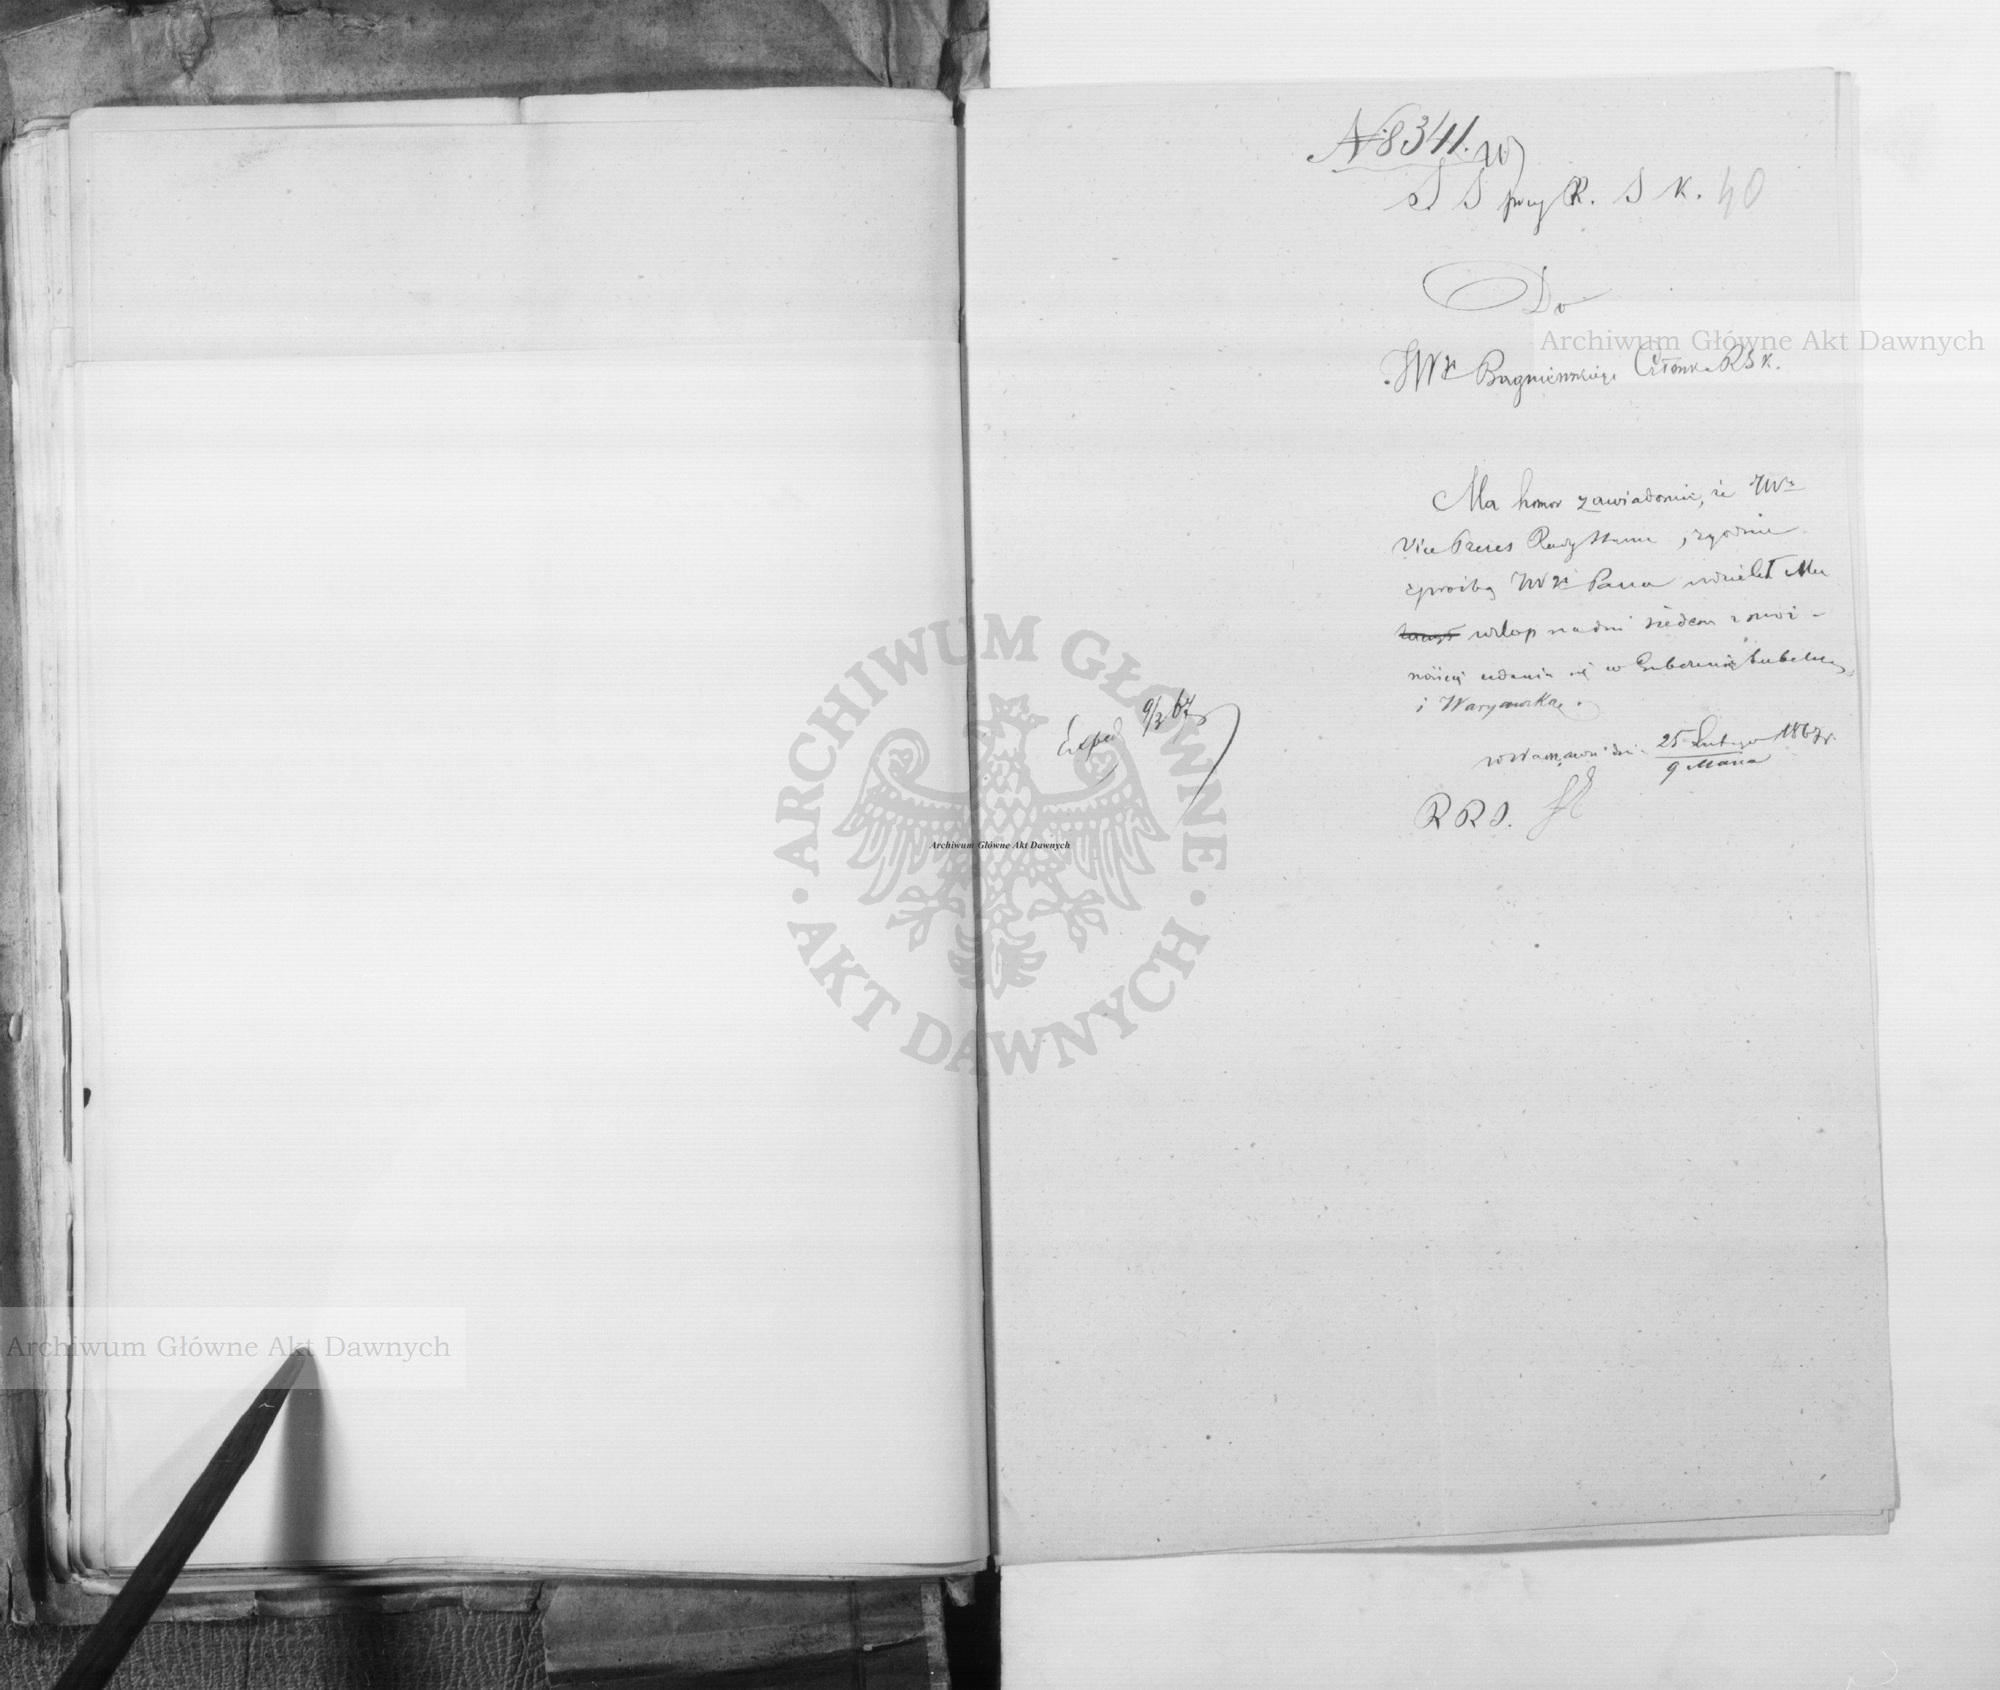 N. 8341.
S S przy R. S K. 40
Do
JWgo Bagniewskiego Członka RSK.
Ma honor zawiadomić, że JWny
Vice Prezes Rady Stanu, zgodnie
z prośbą JWgo Pana udzielił Mu
urlop na dni siedem z moż-
nością udania się w Gubernię Lubelską
i Warszawską.
w Warszawie dnia 25 Lutego 1867 r.
9 Marca
R R S.
Exped 9/3 67
Archiwum Główne Akt Dawnych
ARCHIWUM GŁÓWNE · AKT DAWNYCH ·
Archiwum Główne Akt Dawnych
Archiwum Główne Akt Dawnych